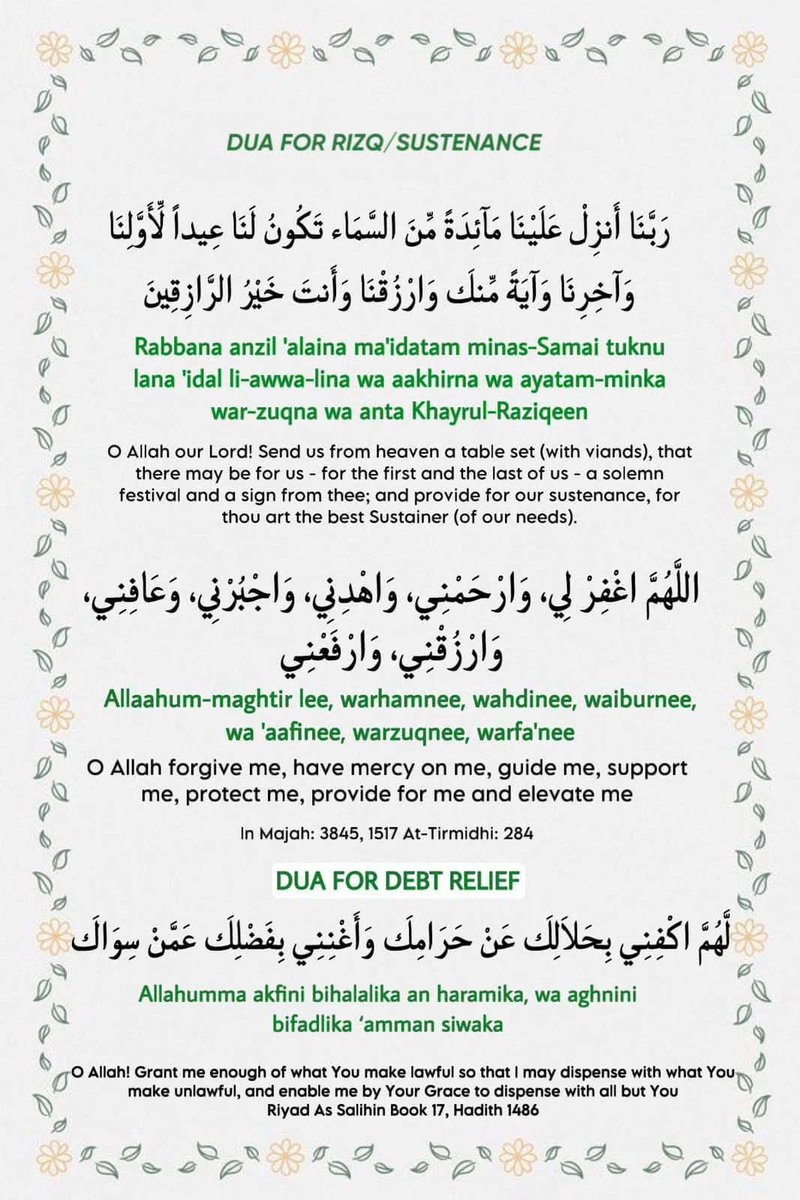 DUA FOR RIZQ/SUSTENANCE
رَبَّنَا أَنزِلْ عَلَيْنَا مَآئِدَةً مِّنَ السَّمَاء تَكُونُ لَنَا عِيداً لِّأَوَّلِنَا
وَآخِرِنَا وَآيَةً مِّنكَ وَارْزُقْنَا وَأَنتَ خَيْرُ الرَّازِقِينَ
Rabbana anzil 'alaina ma'idatam minas-Samai tuknu
lana 'idal li-awwa-lina wa aakhirna wa ayatam-minka
war-zuqna wa anta Khayrul-Raziqeen
O Allah our Lord! Send us from heaven a table set (with viands), that
there may be for us - for the first and the last of us - a solemn
festival and a sign from thee; and provide for our sustenance, for
thou art the best Sustainer (of our needs).
اللَّهُمَّ اغْفِرْ لِي، وَارْحَمْنِي، وَاهْدِنِي، وَاجْبُرْنِي، وَعَافِنِي،
وَارْزُقْنِي، وَارْفَعْنِي
Allaahum-maghtir lee, warhamnee, wahdinee, waiburnee,
wa 'aafinee, warzuqnee, warfa'nee
O Allah forgive me, have mercy on me, guide me, support
me, protect me, provide for me and elevate me
In Majah: 3845, 1517 At-Tirmidhi: 284
DUA FOR DEBT RELIEF
لَّهُمَّ اكْفِنِي بِحَلاَلِكَ عَنْ حَرَامِكَ وَأَغْنِنِي بِفَضْلِكَ عَمَّنْ سِوَاكَ
Allahumma akfini bihalalika an haramika, wa aghnini
bifadlika ‘amman siwaka
O Allah! Grant me enough of what You make lawful so that I may dispense with what You
make unlawful, and enable me by Your Grace to dispense with all but You
Riyad As Salihin Book 17, Hadith 1486